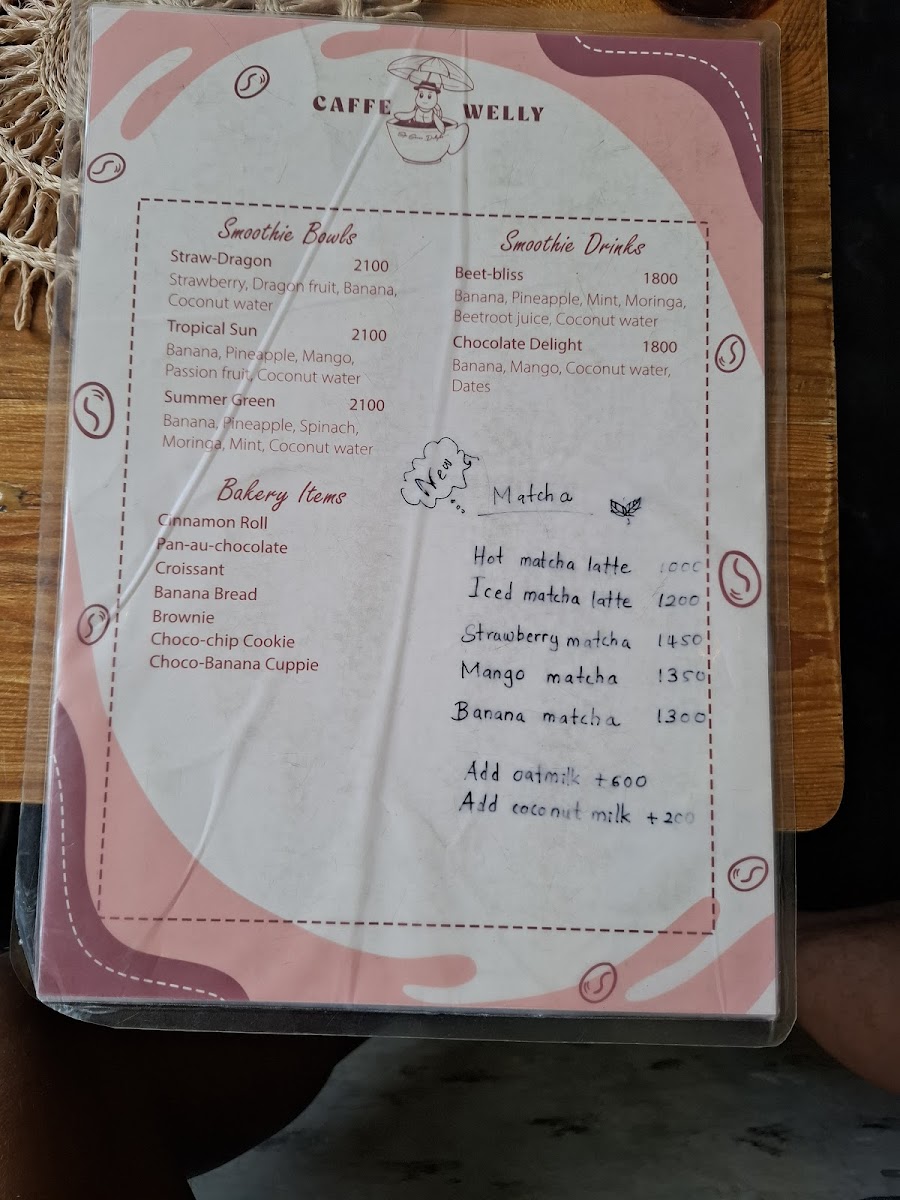 CAFFE WELLY
Smoothie Bowls
Straw-Dragon 2100
Strawberry, Dragon fruit, Banana,
Coconut water
Tropical Sun 2100
Banana, Pineapple, Mango,
Passion fruit, Coconut water
Summer Green 2100
Banana, Pineapple, Spinach,
Moringa, Mint, Coconut water
Bakery Items
Cinnamon Roll
Pan-au-chocolate
Croissant
Banana Bread
Brownie
Choco-chip Cookie
Choco-Banana Cuppie
Smoothie Drinks
Beet-bliss 1800
Banana, Pineapple, Mint, Moringa,
Beetroot juice, Coconut water
Chocolate Delight 1800
Banana, Mango, Coconut water,
Dates
New
Matcha
Hot matcha latte
Iced matcha latte 1200
Strawberry matcha 1450
Mango matcha 1350
Banana matcha 1300
Add oatmilk +600
Add coconut milk +200